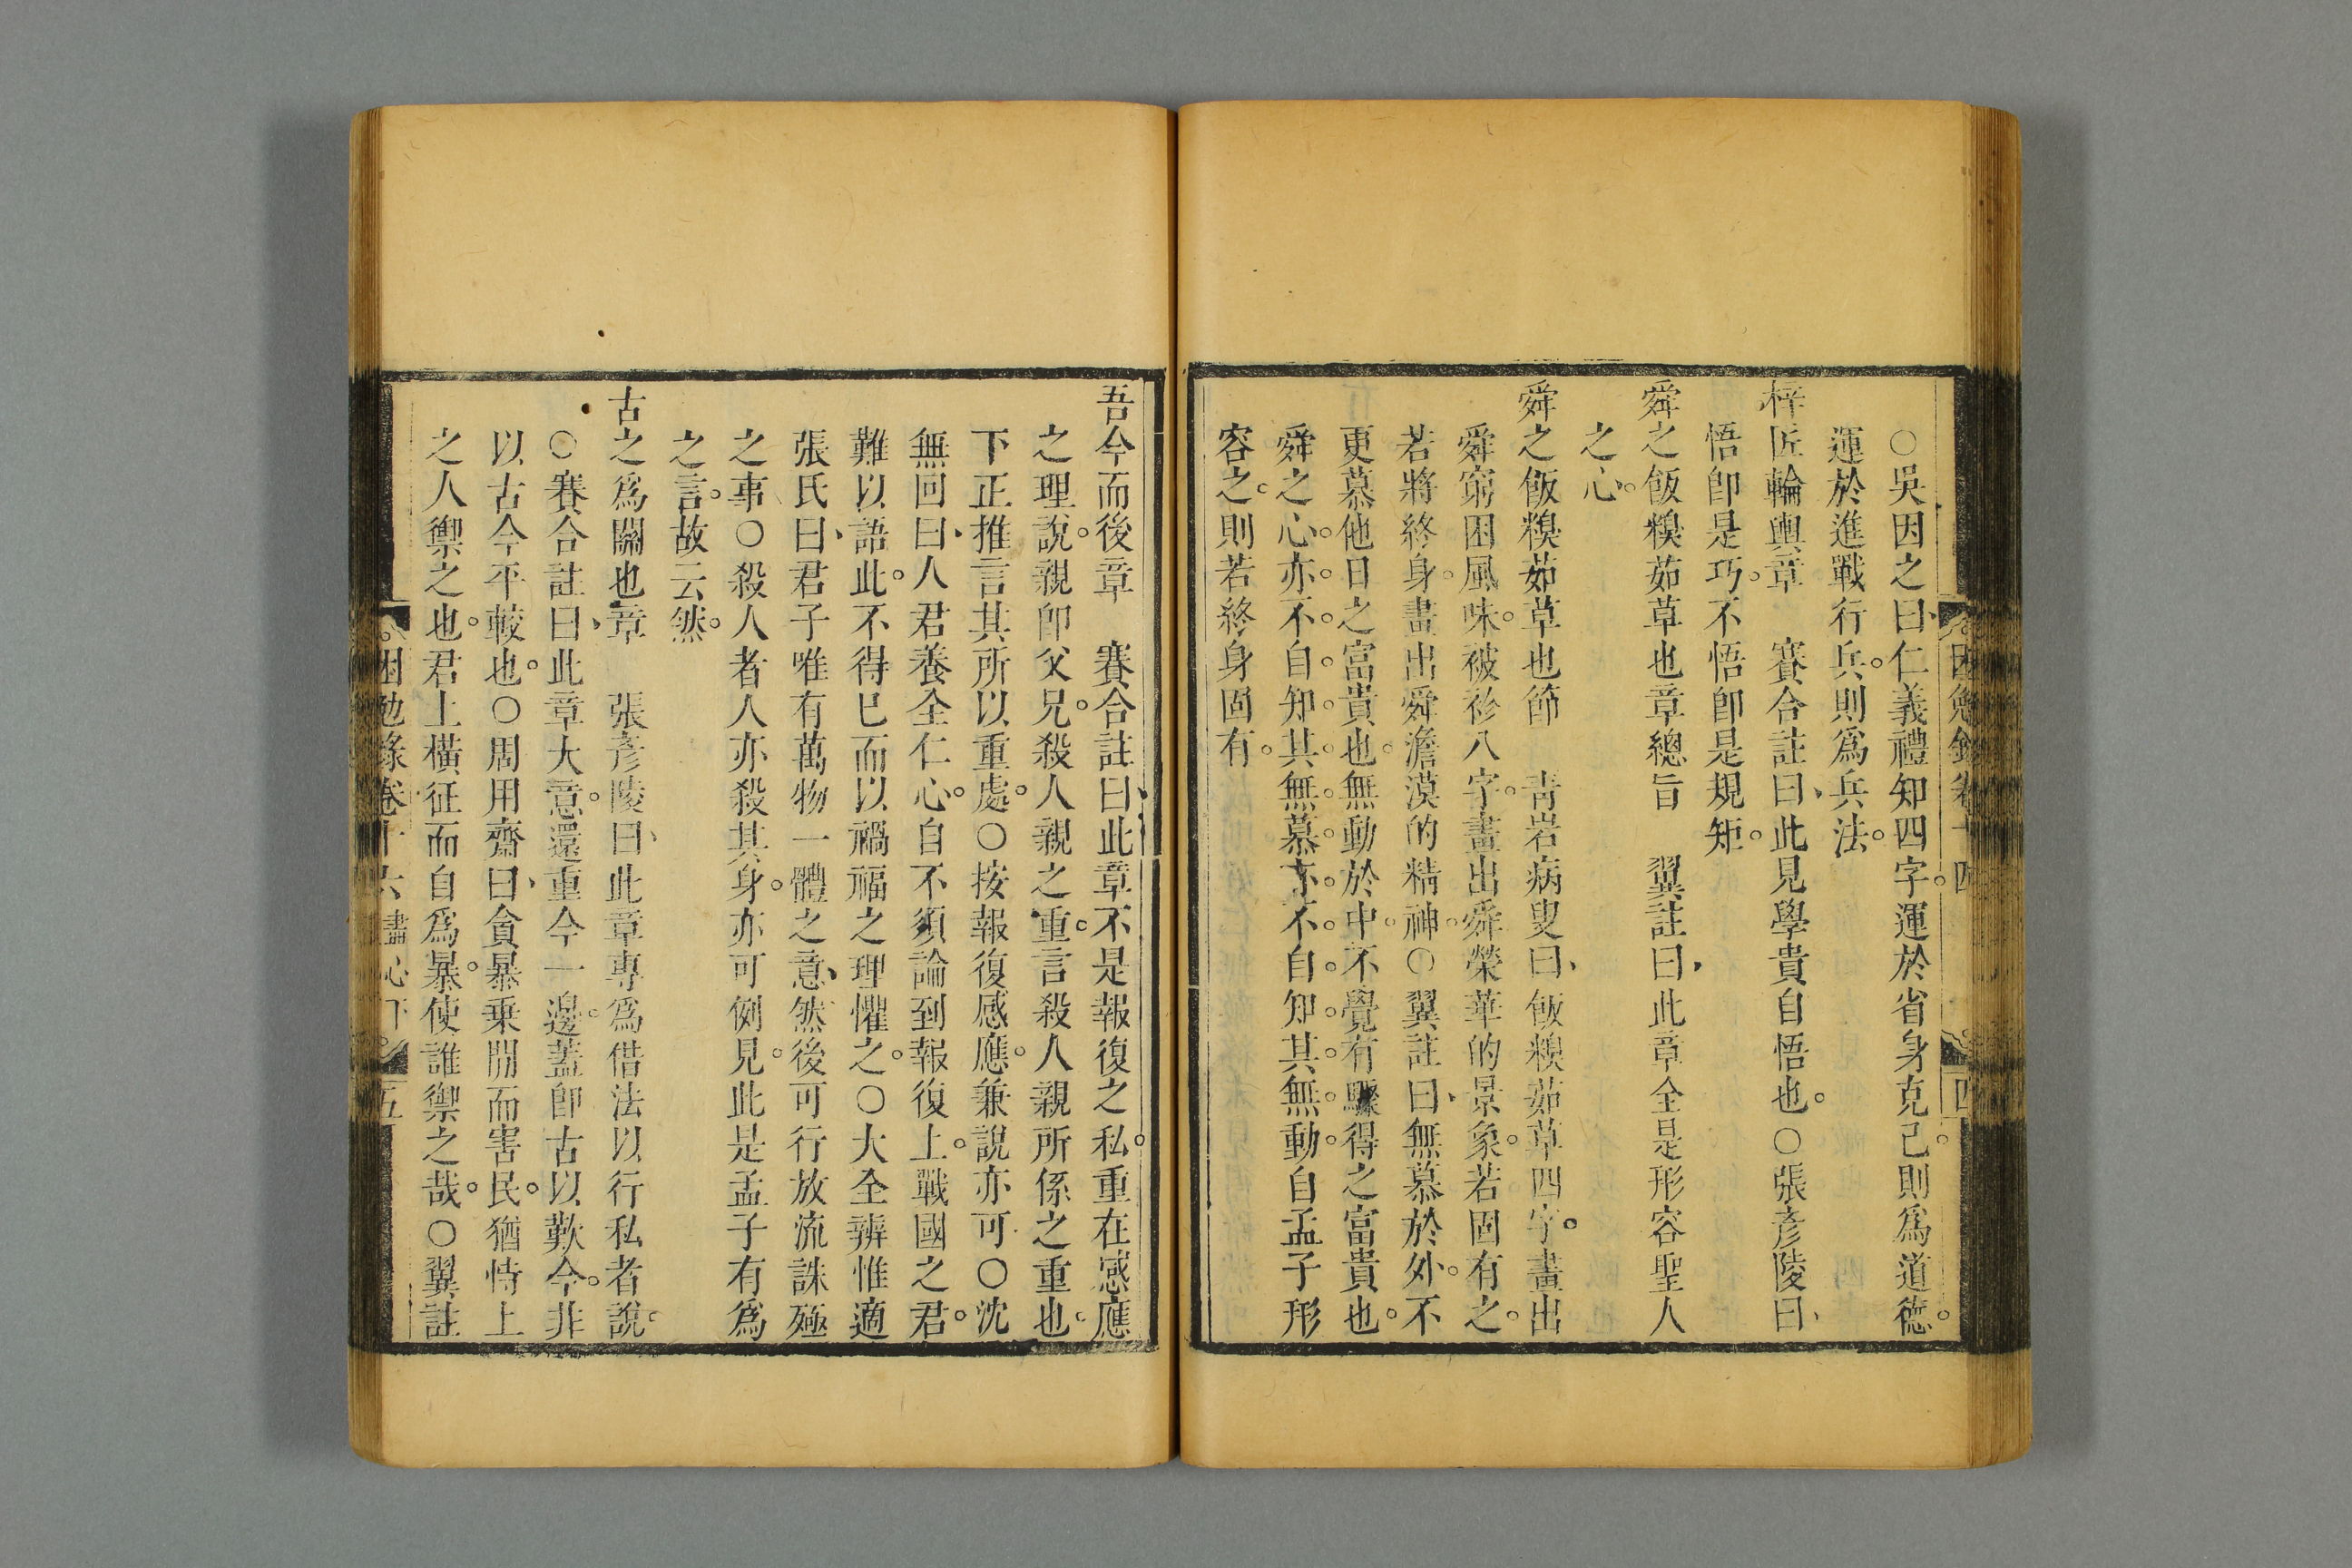 ○吳因之曰仁義禮知四字運於省身克己則爲道德
運於進戰行兵則爲兵法
梓匠輪輿章　賽合註曰此見學貴自悟也○張彥陵曰
悟卽是巧不悟卽是規矩
舜之飯糗茹草也章總旨　翼註曰此章全是形容聖人
之心
舜之飯糗茹草也節　靑岩病叟曰飯糗茹草四字畫出
舜窮困風味被袗八字畫出舜榮華的景象若固有之
若將終身畫出舜澹漠的精神○翼註曰無慕於外不
更慕他日之富貴也無動於中不覺有驟得之富貴也
舜之心亦不自知其無慕亦不自知其無動自孟子形
容之則若終身固有
四
吾今而後章　賽合註曰此章不是報復之私重在感應
之理說親卽父兄殺人親之重言殺人親所係之重也
下正推言其所以重處○按報復感應兼說亦可○沈
無回曰人君養全仁心自不須論到報復上戰國之君
難以語此不得已而以禍福之理懼之○大全辨惟適
張氏曰君子唯有萬物一體之意然後可行放流誅殛
之事○殺人者人亦殺其身亦可例見此是孟子有爲
之言故云然
古之爲關也章　張彥陵曰此章專爲借法以行私者說
○賽合註曰此章大意還重今一邊蓋卽古以歎今非
以古今平較也○周用齋曰貪暴乗閒而害民猶恃上
之人禦之也君上橫征而自爲暴使誰禦之哉○翼註
困勉錄卷十六 盡心下 五